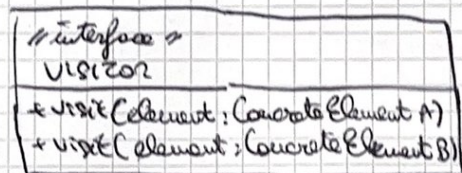 «interface»
VISITOR
+ visit(element: ConcreteElementA)
+ visit(element: ConcreteElementB)